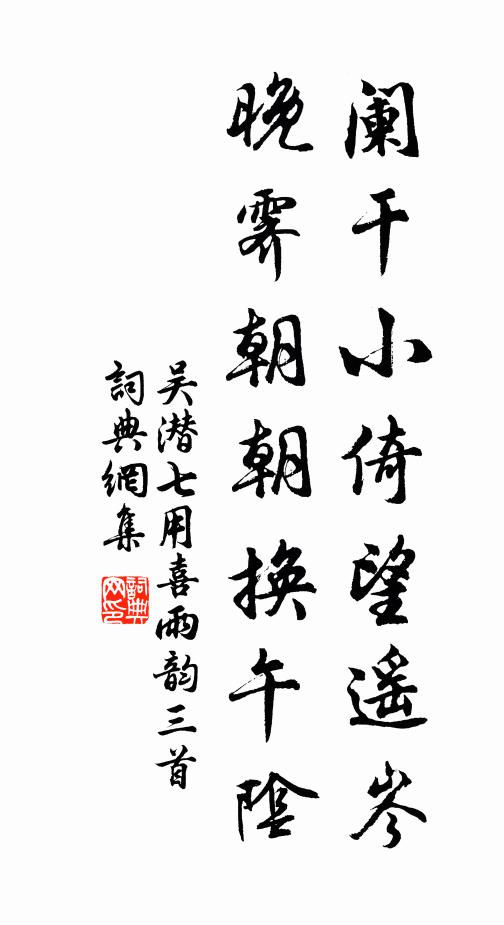 阑干小倚望遥岑
晚霁朝朝换午陰
吴潜七用喜雨韵三首
詞典網集
詞典網印